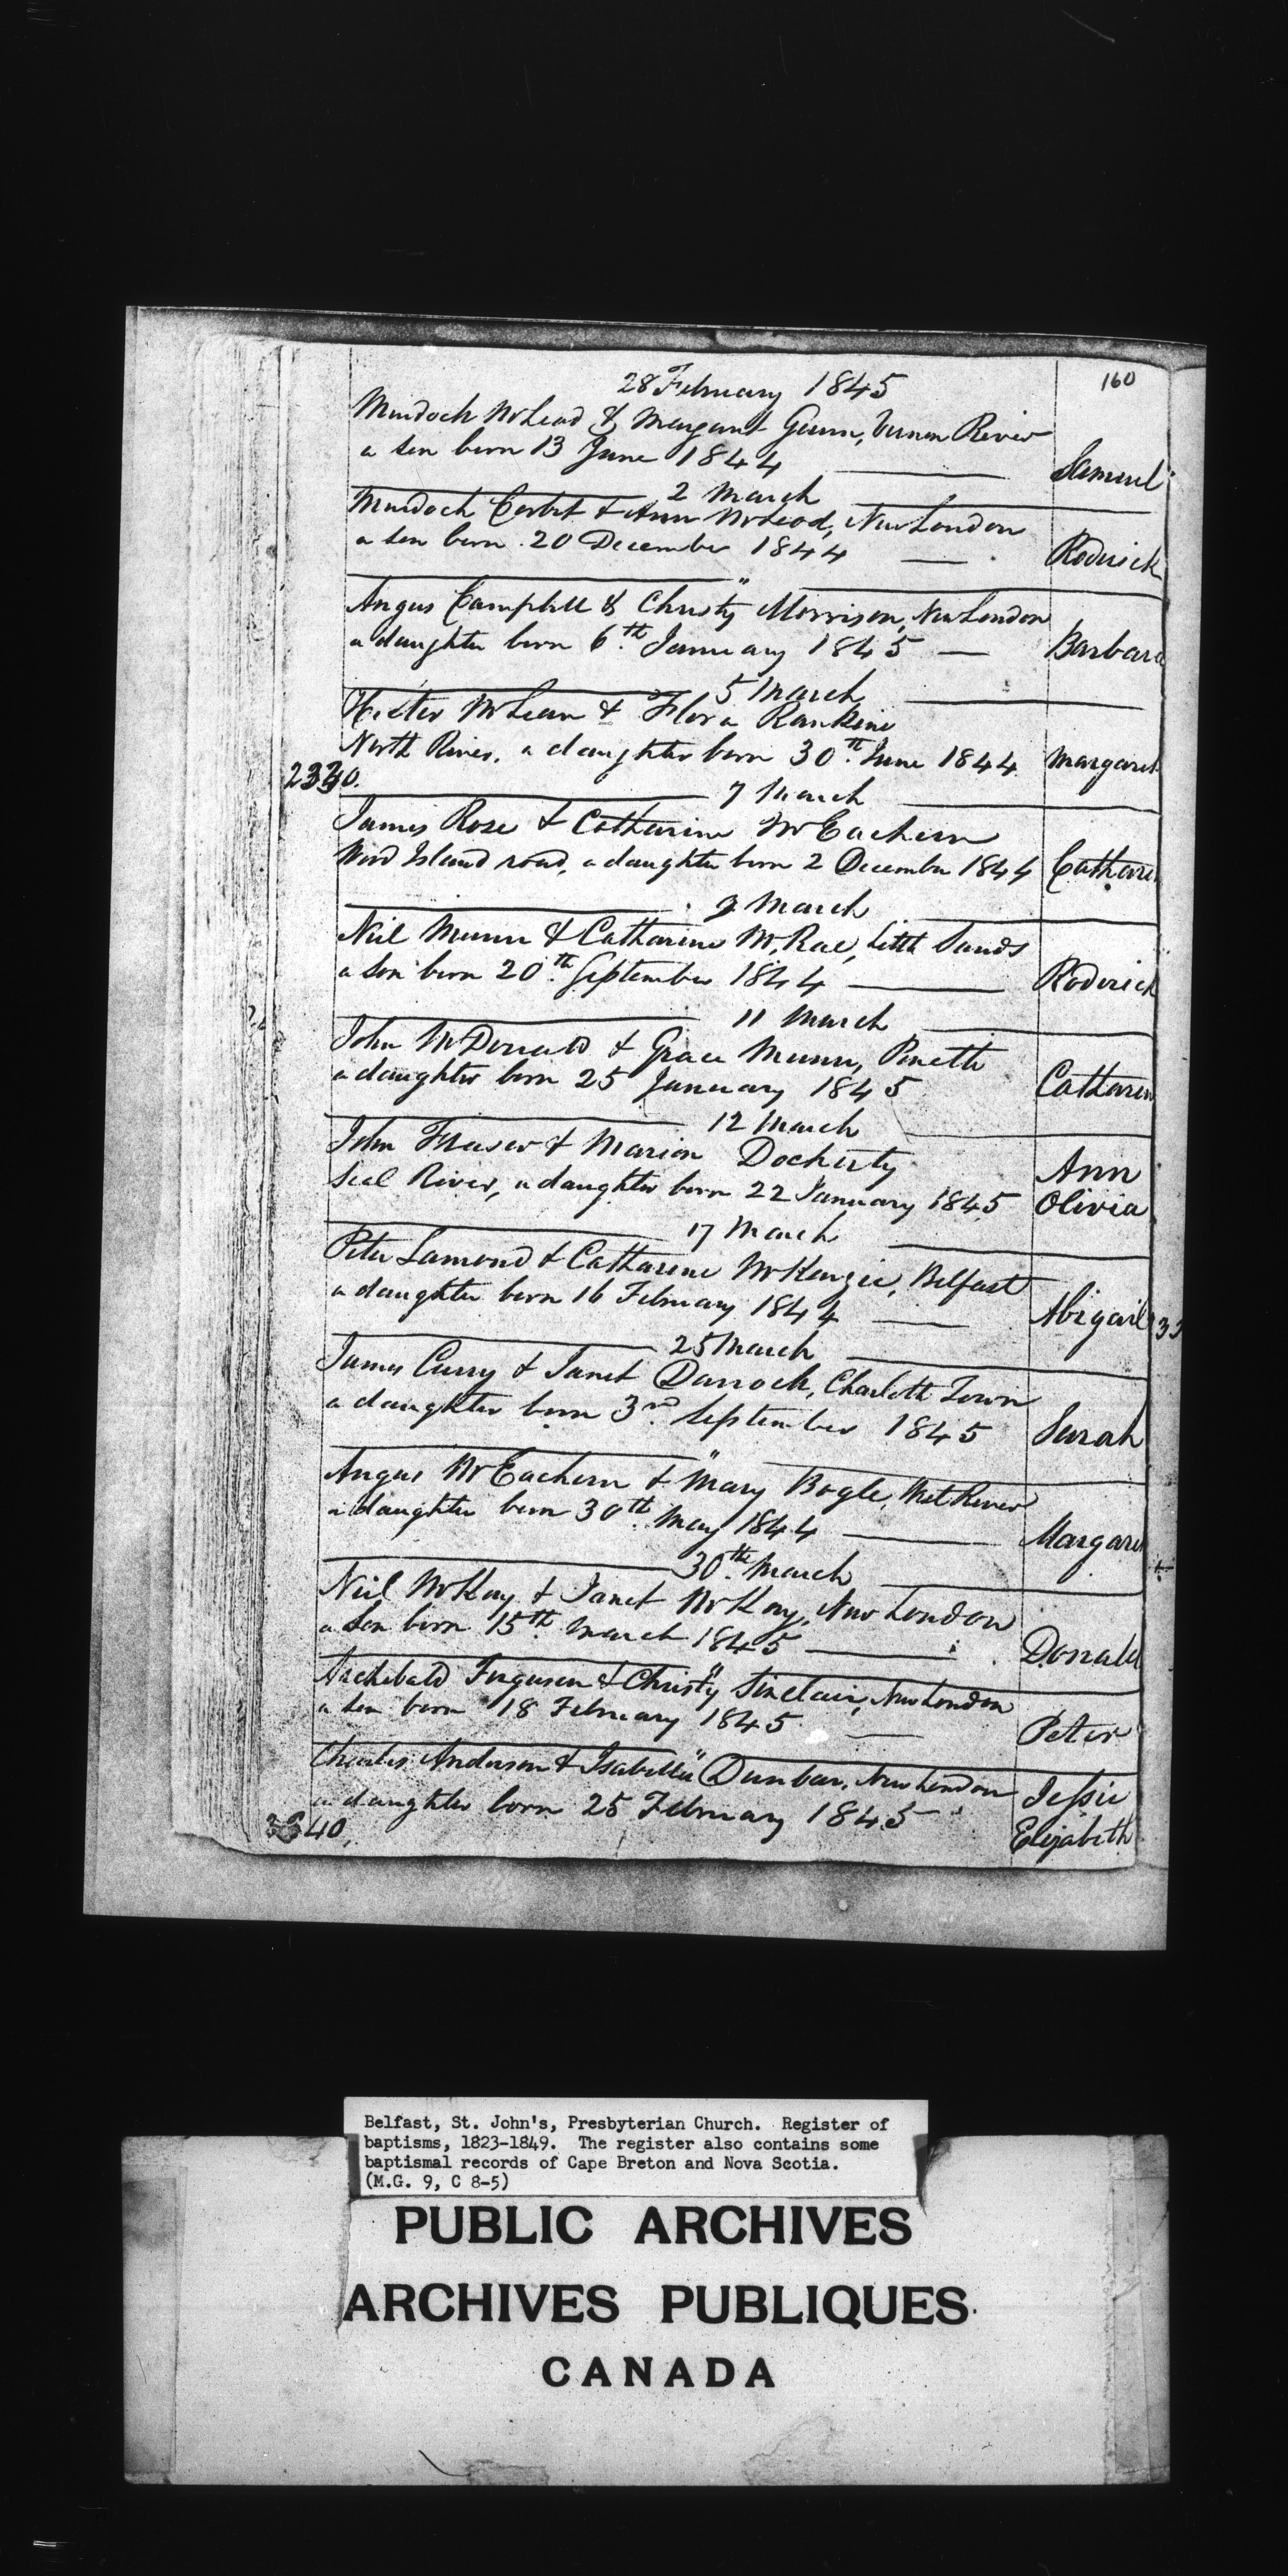 160
28 February 1845
Murdoch McLeod & Margaret Gunn, Vernon River
a son born 13 June 1844 Samuel
2 March
Murdoch Corbet & Ann McLeod, New London
a son born 20 December 1844 Roderick
"
Angus Campbell & Christy Morrison, New London
a daughter born 6th January 1845 Barbara
5 March
Hector McLean & Flora Rankine
North River, a daughter born 30th June 1844 Margaret
7 March
James Rose & Catharine McEachern
Wood Island road, a daughter born 2 December 1844 Cathari
9 March
Neil Munn & Catharine McRae, Little Sands
a son born 20th September 1844 Roderick
11 March
John McDonald & Grace Munn, Pinette
a daughter born 25 January 1845 Catharin
12 March
John Fraser & Marion Docherty Ann
Seal River, a daughter born 22 January 1845 Olivia
17 March
Peter Lamond & Catharine McKenzie, Belfast
a daughter born 16 February 1844 Abigail
25 March
James Curry & Janet Darroch, Charlotte Town
a daughter born 3rd September 1845 Sarah
"
Angus McEachern & Mary Bogle, West River
a daughter born 30th May 1844 Margare
30th March
Neil McKay & Janet McKay, New London
a son born 15th March 1845 Donald
"
Archibald Ferguson & Christy Sinclair, New London
a son born 18 February 1845 Peter
"
Charles Anderson & Isabella Dunbar, New London Jessie
a daughter born 25 February 1845 Elizabeth
40,
Belfast, St. John's, Presbyterian Church. Register of
baptisms, 1823-1849. The register also contains some
baptismal records of Cape Breton and Nova Scotia.
(M.G. 9, C 8-5)
PUBLIC ARCHIVES
ARCHIVES PUBLIQUES
CANADA